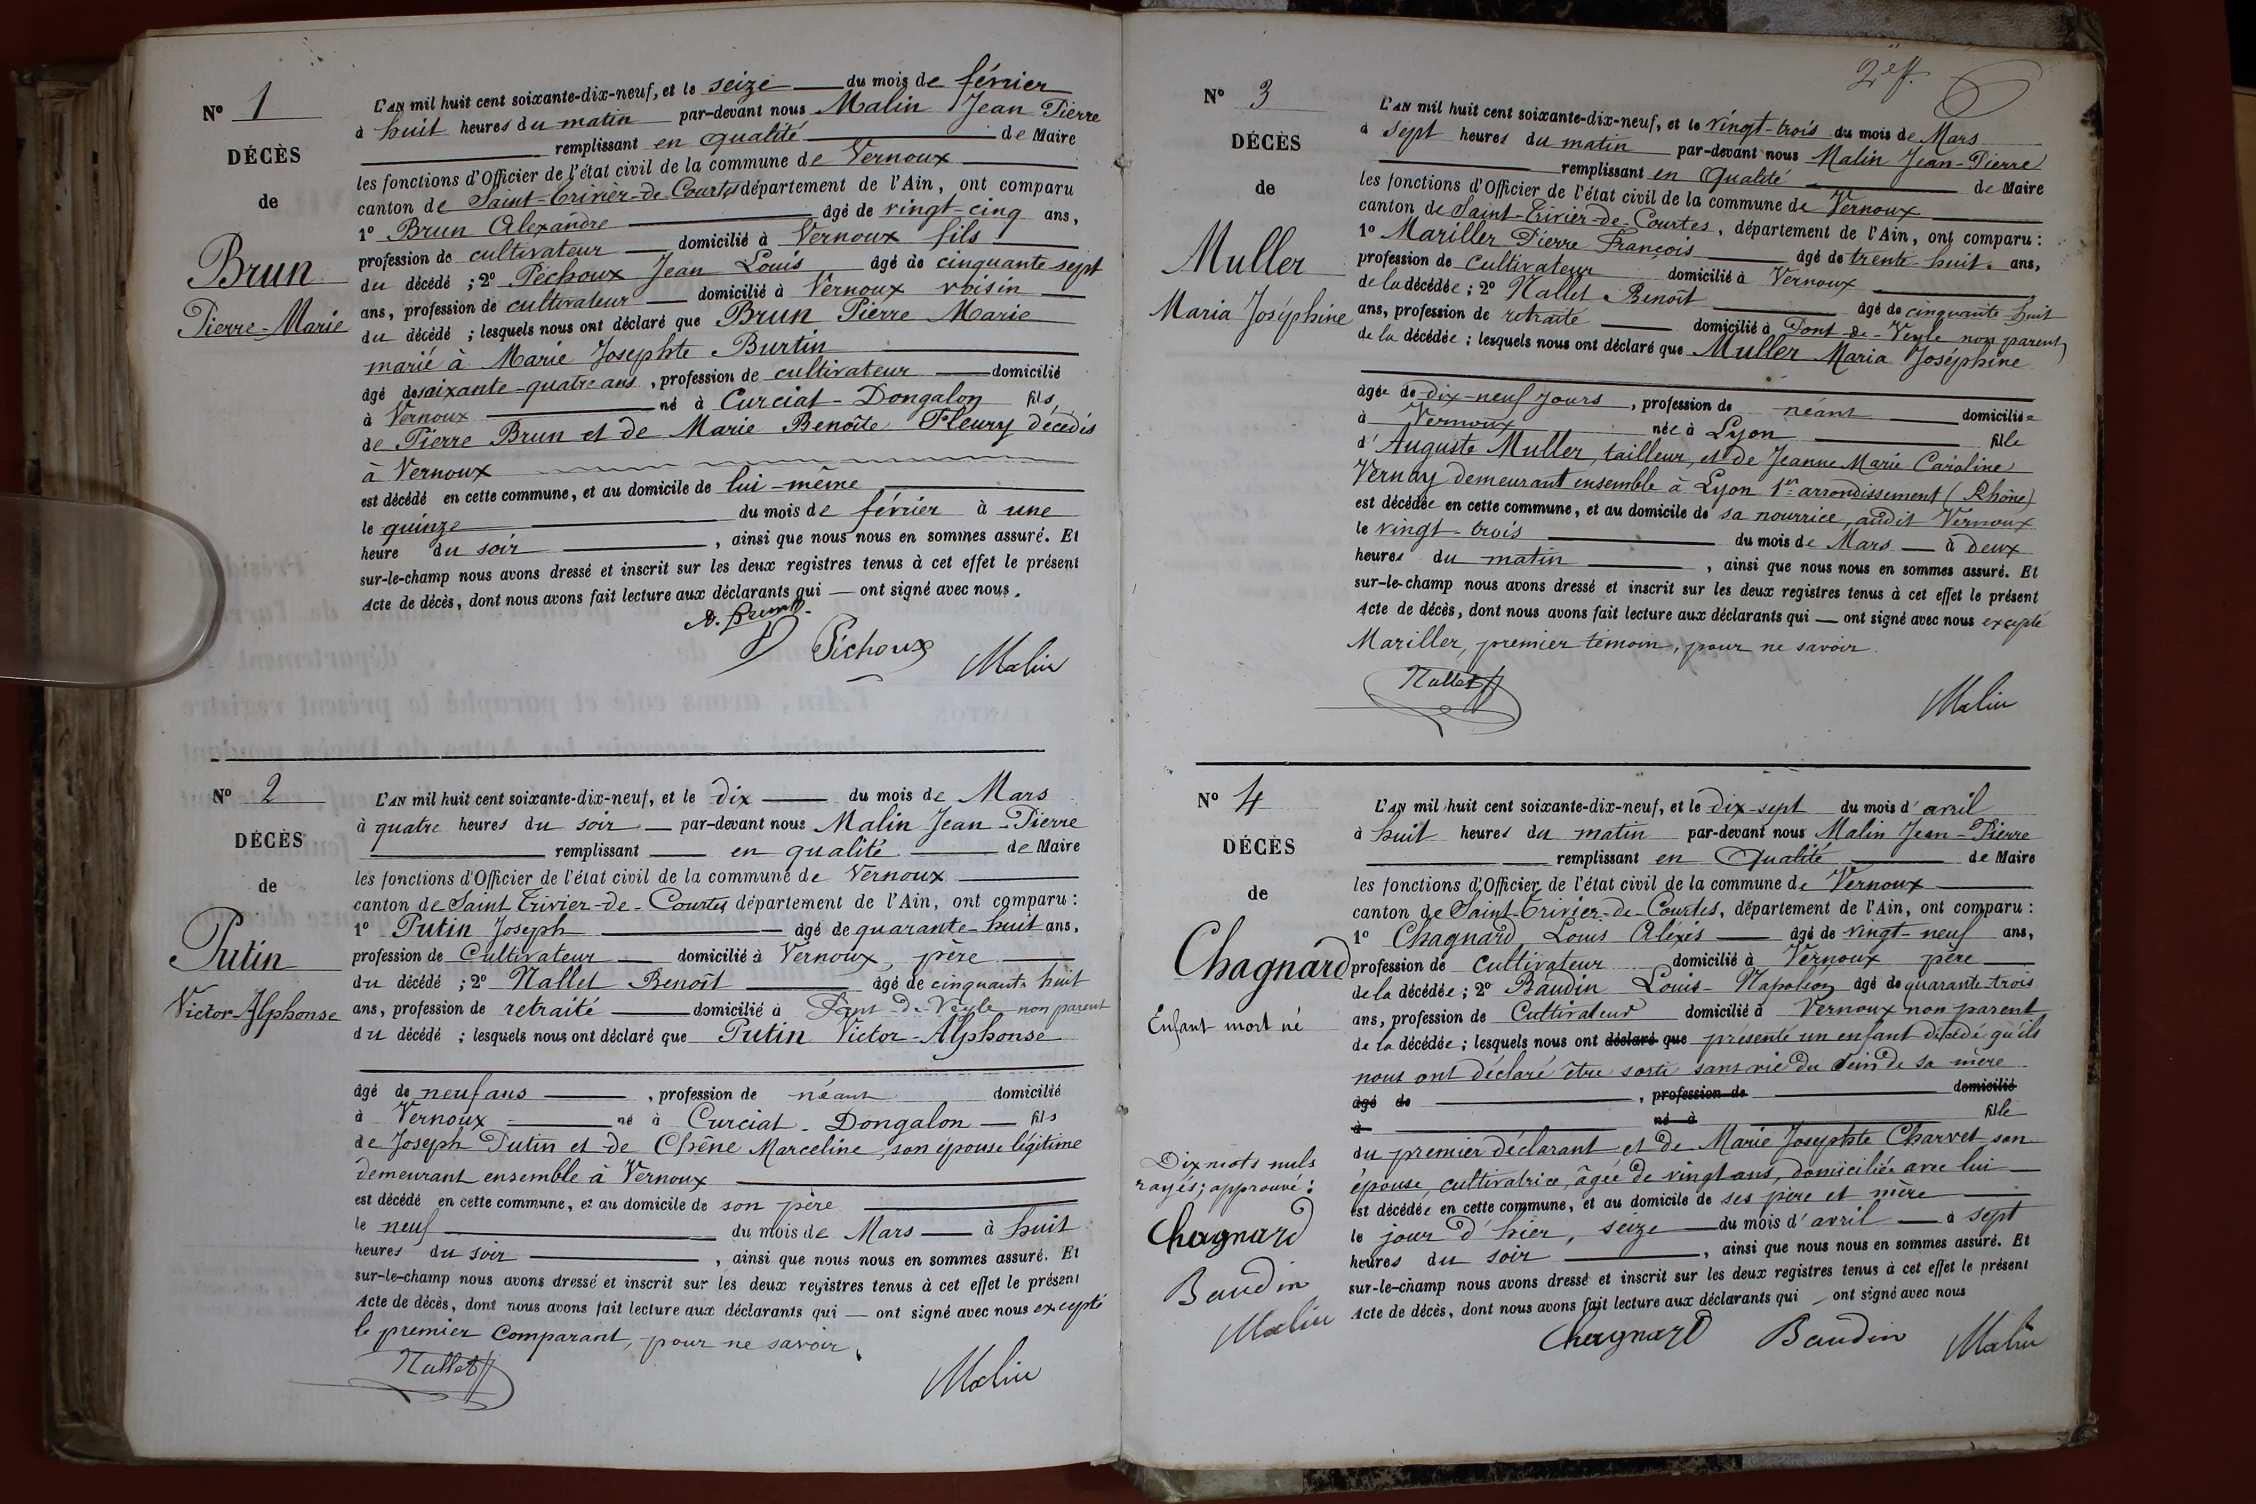 N° 1
DÉCÈS
de
Brun
Pierre-Marie
L'AN mil huit cent soixante-dix-neuf, et le seize du mois de février
à huit heures du matin par-devant nous Malin Jean Pierre
remplissant en qualité de Maire
les fonctions d'Officier de l'état civil de la commune de Vernoux
canton de Saint-Trivier-de-Courtes département de l'Ain, ont comparu
1° Brun Alexandre âgé de vingt-cinq ans,
profession de cultivateur domicilié à Vernoux fils
du décédé ; 2° Péchoux Jean Louis âgé de cinquante sept
ans, profession de cultivateur domicilié à Vernoux voisin
du décédé ; lesquels nous ont déclaré que Brun Pierre Marie
marié à Marie Josephte Burtin
âgé de soixante-quatre ans, profession de cultivateur domicilié
à Vernoux né à Curciat-Dongalon fils
de Pierre Brun et de Marie Benoite Fleury décédés
à Vernoux
est décédé en cette commune, et au domicile de lui-même
le quinze du mois de février à une
heure du soir, ainsi que nous nous en sommes assuré. Et
sur-le-champ nous avons dressé et inscrit sur les deux registres tenus à cet effet le présent
Acte de décès, dont nous avons fait lecture aux déclarants qui — ont signé avec nous.
A. Brun
Péchoux
Malin
N° 2
DÉCÈS
de
Putin
Victor-Alphonse
L'AN mil huit cent soixante-dix-neuf, et le dix du mois de Mars
à quatre heures du soir par-devant nous Malin Jean-Pierre
remplissant en qualité de Maire
les fonctions d'Officier de l'état civil de la commune de Vernoux
canton de Saint Trivier-de-Courtes département de l'Ain, ont comparu :
1° Putin Joseph âgé de quarante-huit ans,
profession de Cultivateur domicilié à Vernoux, père
du décédé ; 2° Nallet Benoît âgé de cinquante huit
ans, profession de retraité domicilié à Pont-de-Veyle non parent
du décédé ; lesquels nous ont déclaré que Putin Victor-Alphonse
âgé de neuf ans, profession de néant domicilié
à Vernoux né à Curciat-Dongalon fils
de Joseph Putin et de Chêne Marceline, son épouse légitime
demeurant ensemble à Vernoux
est décédé en cette commune, et au domicile de son père
le neuf du mois de Mars à huit
heures du soir, ainsi que nous nous en sommes assuré. Et
sur-le-champ nous avons dressé et inscrit sur les deux registres tenus à cet effet le présent
Acte de décès, dont nous avons fait lecture aux déclarants qui — ont signé avec nous excepté
le premier Comparant, pour ne savoir.
Nallet
Malin
2e f.
N° 3
DÉCÈS
de
Muller
Maria Joséphine
L'AN mil huit cent soixante-dix-neuf, et le vingt-trois du mois de Mars
à sept heures du matin par-devant nous Malin Jean-Pierre
remplissant en Qualité de Maire
les fonctions d'Officier de l'état civil de la commune de Vernoux
canton de Saint-Trivier-de-Courtes, département de l'Ain, ont comparu :
1° Mariller Pierre François âgé de trente-huit. ans,
profession de Cultivateur domicilié à Vernoux
de la décédée ; 2° Nallet Benoît âgé de cinquante huit
ans, profession de retraité domicilié à Pont-de-Veyle non parent
de la décédée ; lesquels nous ont déclaré que Muller Maria Joséphine
âgée de dix-neuf jours, profession de néant domiciliée
à Vernoux née à Lyon fille
d'Auguste Muller, tailleur, et de Jeanne Marie Caroline
Vernay demeurant ensemble à Lyon 1er arrondissement (Rhône)
est décédée en cette commune, et au domicile de sa nourrice, audit Vernoux
le vingt-trois du mois de Mars à deux
heures du matin, ainsi que nous nous en sommes assuré. Et
sur-le-champ nous avons dressé et inscrit sur les deux registres tenus à cet effet le présent
Acte de décès, dont nous avons fait lecture aux déclarants qui — ont signé avec nous excepté
Mariller, premier témoin, pour ne savoir.
Nallet
Malin
N° 4
DÉCÈS
de
Chagnard
Enfant mort né
L'AN mil huit cent soixante-dix-neuf, et le dix-sept du mois d'avril
à huit heures du matin par-devant nous Malin Jean-Pierre
remplissant en Qualité de Maire
les fonctions d'Officier de l'état civil de la commune de Vernoux
canton de Saint-Trivier-de-Courtes, département de l'Ain, ont comparu :
1° Chagnard Louis Alexis âgé de vingt-neuf ans,
profession de cultivateur domicilié à Vernoux père
de la décédée ; 2° Baudin Louis-Napoléon âgé de quarante-trois
ans, profession de Cultivateur domicilié à Vernoux non parent
de la décédée ; lesquels nous ont déclaré que présenté un enfant décédé qu'ils
nous ont déclaré être sorti sans vie du sein de sa mère
âgé de, profession de domicilié
à né à fille
du premier déclarant et de Marie Josephte Charvet son
épouse, cultivatrice, âgée de vingt ans, domiciliée avec lui
est décédée en cette commune, et au domicile de ses père et mère
le jour d'hier, seize du mois d'avril à sept
heures du soir, ainsi que nous nous en sommes assuré. Et
sur-le-champ nous avons dressé et inscrit sur les deux registres tenus à cet effet le présent
Acte de décès, dont nous avons fait lecture aux déclarants qui — ont signé avec nous
Chagnard
Baudin
Malin
Dix mots nuls
rayés; approuvé :
Chagnard
Baudin
Malin